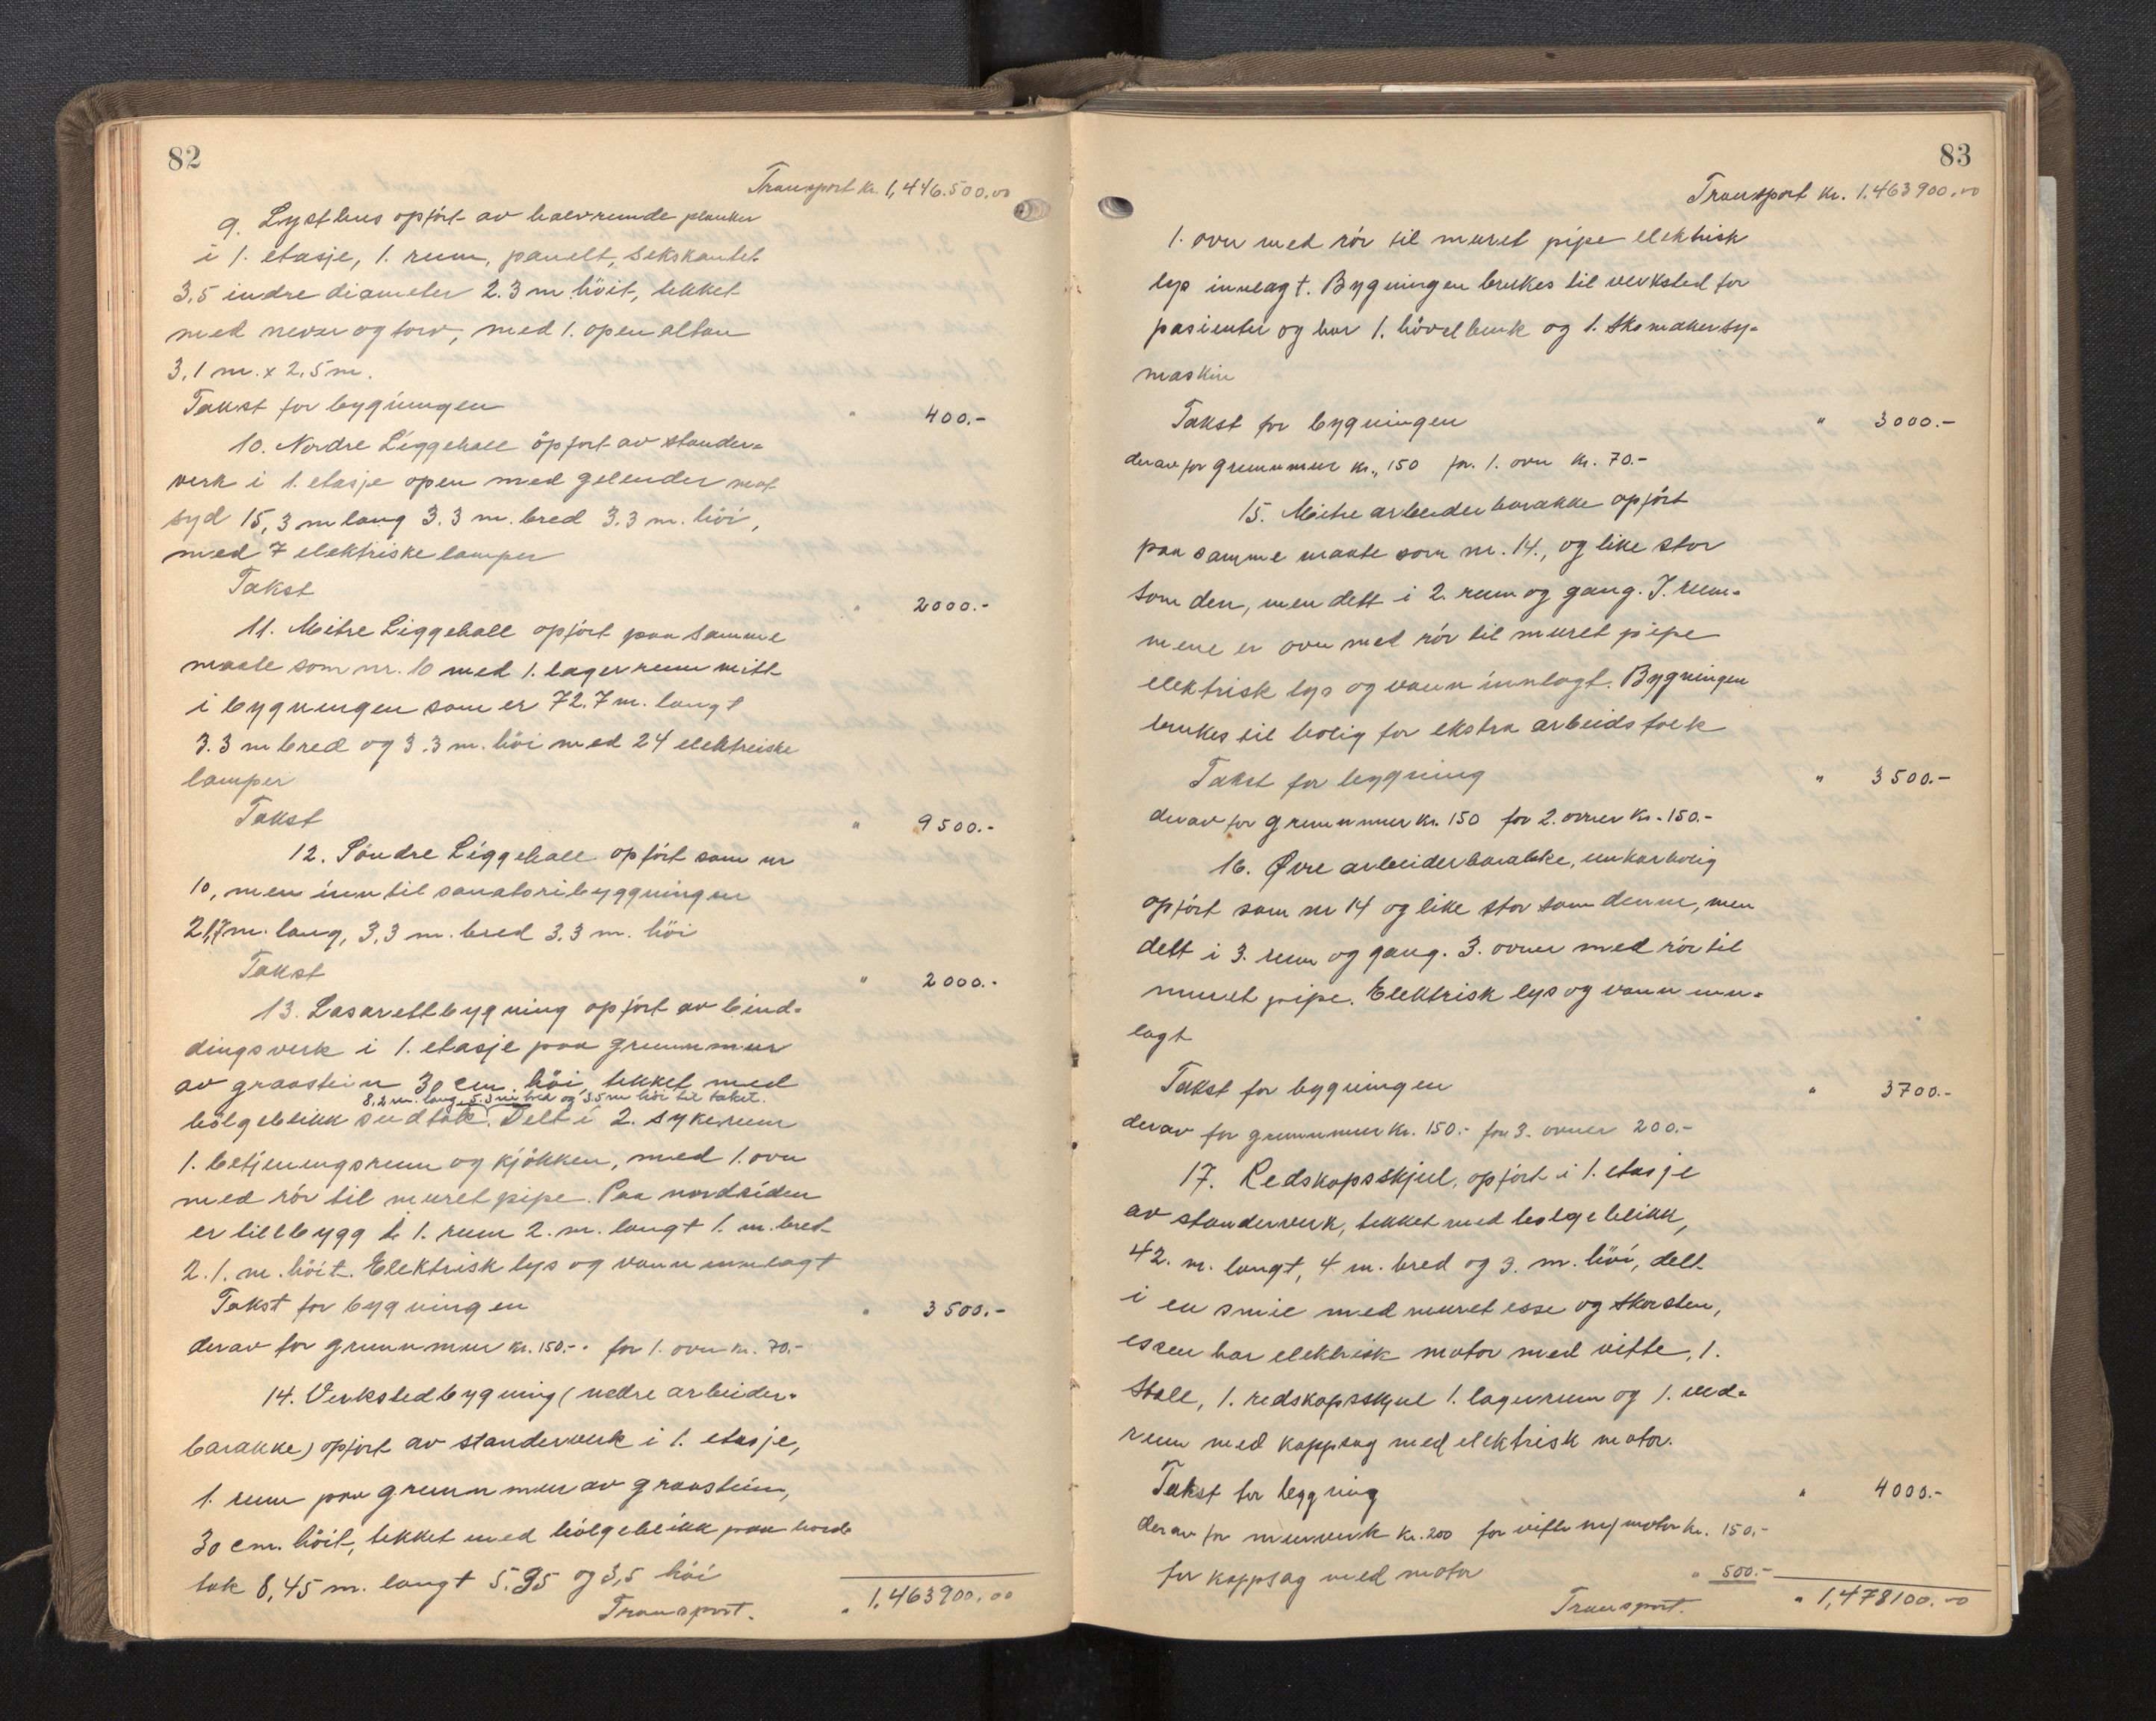 82
Transport Kr. 1,446.500,00
9. Lysthus opført av halvrunde planker
i 1. etasje, 1. rum, panelt, sekskantet
3,5 indre diameter 2.3 m höit, tekket
med never og torv, med 1. open altan
3,1 m. x 2,5 m.
Takst for bygningen " 400.-
10. Nordre Liggehall opført av stander-
verk i 1. etasje open med gelender mot
syd 15,3 m lang 3.3 m. bred 3.3 m. höi,
med 7 elektriske lamper
Takst " 2000.-
11. Mitre Liggehall opført paa samme
maate som nr. 10 med 1. lagerrum mitt
i bygningen som er 72.7 m. langt
3.3 m bred og 3.3 m. höi med 24 elektreiske
lamper
Takst " 9500.-
12. Söndre Liggehall opført som nr
10, men inn til sanatoribyggningen
21,7 m. lang, 3,3 m. bred 3.3 m. höi
Takst " 2000.-
13. Lasarettbygning opført av bind-
dingsverk i 1. etasje paa grunnmur
av graastein 30 cm. höi, tekket med
8,2 m. lang, 5.3 m bred og 3.5 m höi til taket.
bölgeblikk sudtak. Delt i 2. sykerum
1. betjeningsrum og kjökken, med 1. ovn
med rör til muret pipe. Paa nordsiden
er tillbygg t 1. rum 2. m. langt 1. m. bret
2.1. m. höit. Elektrisk lys og vann innlagt
Takst for bygningen " 3500.-
derav for grunnmur kr. 150.-. for 1. ovn kr. 70.-
14. Verkstedbygning (nedre arbeider-
barakke) opført av standerverk i 1. etasje,
1. rum paa grunnmur av graastein,
30 cm. höit, tekket med bölgeblikk paa bord-
tak 8,45 m. langt 5.95 og 3,5 höi
Transport. " 1.463900.00
83
Transport Kr. 1.463900.00
1. ovn med rör til muret pipe elektrisk
lys innlagt. Bygningen brukes til verksted for
pasienter og har 1. hövelbenk og 1. skomakersy-
maskin
Takst for bygningen " 3000.-
derav for grunnmur kr. 150 for. 1. ovn kr. 70.-
15. Mitre arbeiderbarakke opført
paa samme maate som nr. 14., og like stor
som den, men delt i 2. rum og gang. I. rum-
mene er ovn med rör til muret pipe
elektrisk lys og vann innlagt. Bygningen
brukes til bolig for ekstra arbeidsfolk
Takst for bygning " 3500.-
derav for grunnmur kr. 150 for 2. ovner kr. 150.-
16. Øvre arbeiderbarakke, unkarbolig
opført som nr 14 og like stor som denne, men
delt i 3. rum og gang. 3. ovner med rör til
muret pipe. Elektrisk lys og vann inn-
lagt
Takst for bygningen " 3700.-
derav for grunnmur kr. 150.- for 3. ovner 200.-
17. Redskapsskjul, opført i 1. etasje
av standerverk, tekket med bølgeblikk,
42. m. langt, 4. m. bred og 3. m. höi, delt
i en smie med muret esse og skorsten,
essen har elektrisk motor med vifte, 1.
Stall, 1. redskapsskjul 1. lagerrum og 1. ved-
rum med kappsag med elektrisk motor.
Takst for bygning " 4000.-
derav for murverk kr. 200 for vifte m/motor kr. 150,-
for kappsag med motor " 500.-
Transport. " 1,478100.00